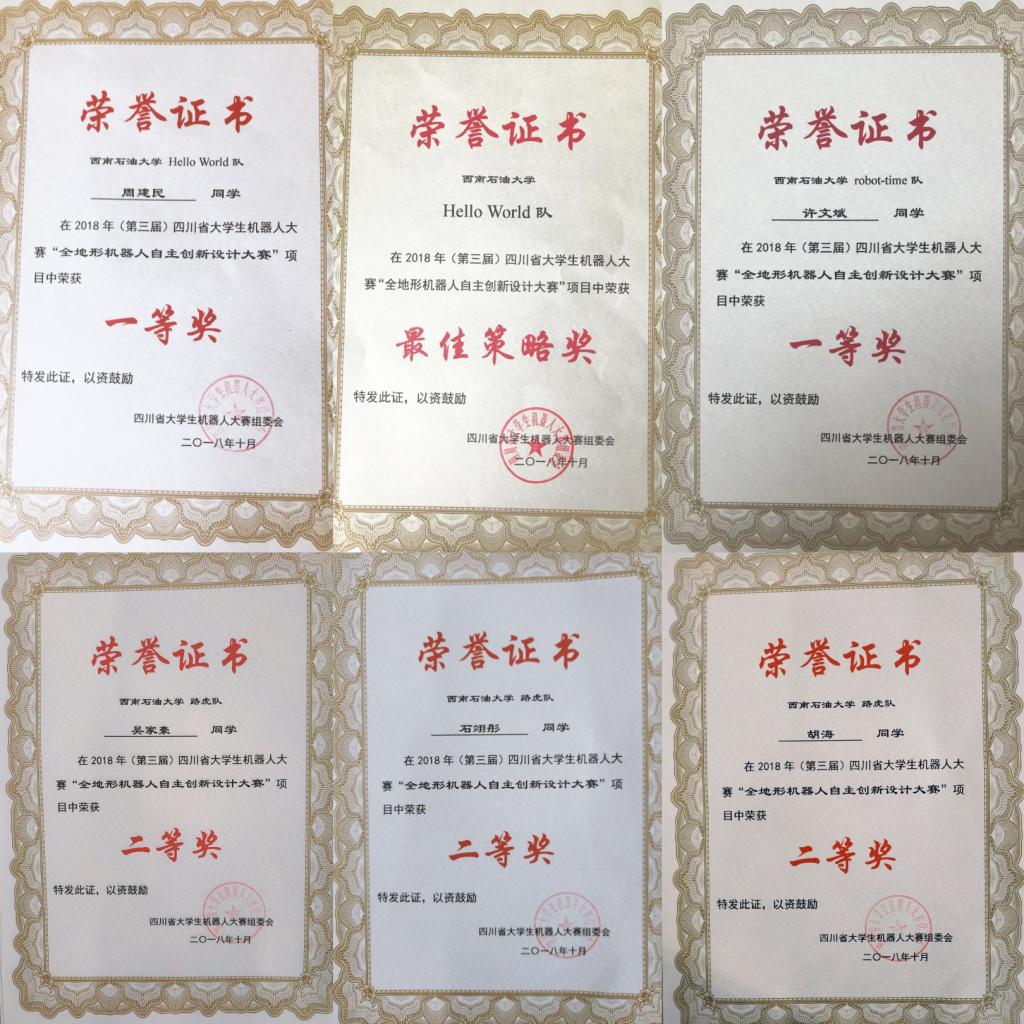 荣誉证书
西南石油大学 Hello World 队
周建民 同学
在 2018 年（第三届）四川省大学生机器人大
赛“全地形机器人自主创新设计大赛”项
目中荣获
一等奖
特发此证，以资鼓励
四川省大学生机器人大赛组委会
二〇一八年十月
荣誉证书
西南石油大学
Hello World 队
在 2018 年（第三届）四川省大学生机器人大
赛“全地形机器人自主创新设计大赛”项目中荣获
最佳策略奖
特发此证，以资鼓励
四川省大学生机器人大赛组委会
二〇一八年十月
荣誉证书
西南石油大学 robot-time 队
许文斌 同学
在 2018 年（第三届）四川省大学生机器人大
赛“全地形机器人自主创新设计大赛”项
目中荣获
一等奖
特发此证，以资鼓励
四川省大学生机器人大赛组委会
二〇一八年十月
荣誉证书
西南石油大学 路虎队
吴家豪 同学
在 2018 年（第三届）四川省大学生机器人大
赛“全地形机器人自主创新设计大赛”项
目中荣获
二等奖
特发此证，以资鼓励
四川省大学生机器人大赛组委会
二〇一八年十月
荣誉证书
西南石油大学 路虎队
石翊彤 同学
在 2018 年（第三届）四川省大学生机器人大
赛“全地形机器人自主创新设计大赛”项
目中荣获
二等奖
特发此证，以资鼓励
四川省大学生机器人大赛组委会
二〇一八年十月
荣誉证书
西南石油大学 路虎队
胡海 同学
在 2018 年（第三届）四川省大学生机器人大
赛“全地形机器人自主创新设计大赛”项
目中荣获
二等奖
特发此证，以资鼓励
四川省大学生机器人大赛组委会
二〇一八年十月